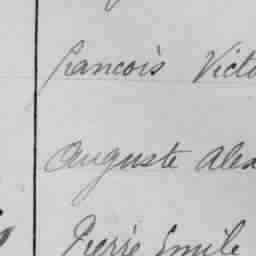 francois Victo
Auguste Alex
Pierre Emile